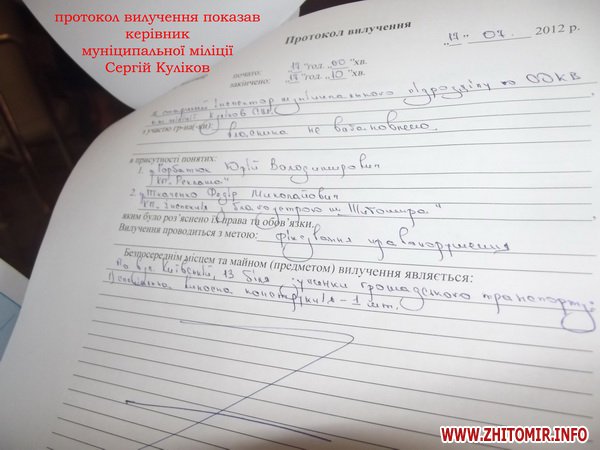 протокол вилучення показав
керівник
муніципальної міліції
Сергій Куліков
Протокол вилучення
„17" 07 2012 р.
почато: 17 "год. „00 "хв.
закінчено: 17 "год. „10 "хв.
інспектор муніципального підрозділу по ОДКВ
міліції Куліков
з участю гр-на(-ки): власника не встановлено.
в присутності понятих:
1. Горбатюк Юрій Володимирович
КП „Реклама"
2. Ткаченко Федір Миколайович
КП „Інспекція з благоустрою м. Житомира"
яким було роз'яснено їх права та обов'язки.
Вилучення проводиться з метою: фіксування правопорушення
Безпосереднім місцем та майном (предметом) вилучення являється:
по вул. Київській, 13 біля зупинки громадського транспорту
виносна конструкція - 1 шт.
WWW.ZHITOMIR.INFO